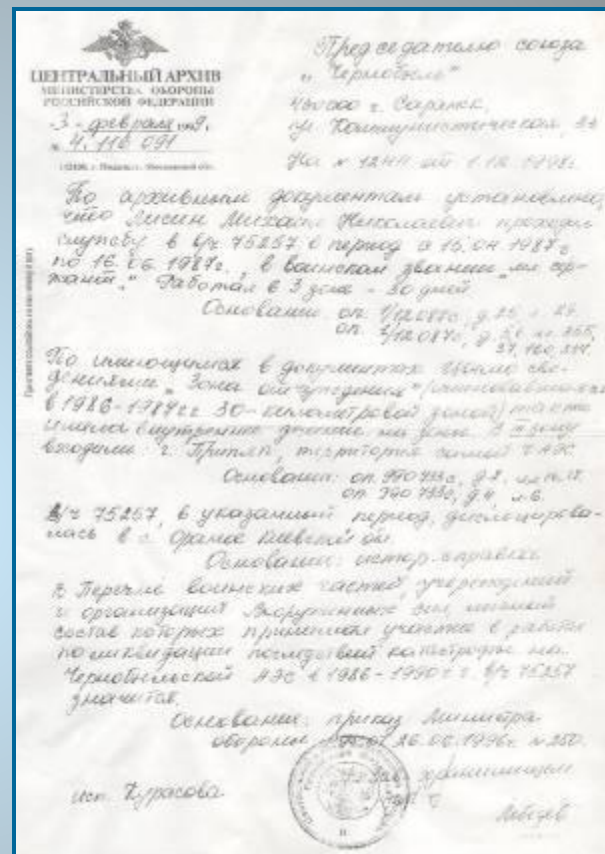 ЦЕНТРАЛЬНЫЙ АРХИВ
МИНИСТЕРСТВА ОБОРОНЫ
РОССИЙСКОЙ ФЕДЕРАЦИИ
"3" февраля 1999г.
№ 4.110 091
Председателю союза
"Чернобыль"
430000 г. Саранск,
ул. Коммунистическая,
На № 1244 от 1.12.1998г.
По архивным документам установлено,
что Лисин Михаил Николаевич проходил
службу в в/ч 75257 в период с 16.04 1987г
по 16.06.1987г., в воинском звании "мл. сер-
жант". Работал в 3 зоне - 30 дней
Основание: оп.
оп.
По имеющимся в документах све-
дениям "Зона отчуждения"
в 1986-1987гг. 30-километровой зоной)
имела внутреннее деление на зоны. В III зону
входили: г. Припять, территория самой ЧАЭС.
Основание: оп. 990 733с, д.
оп. 990 733с, д. 4, л. 6.
В/ч 75257, в указанный период, дислоцирова-
лась в с. Оране Киевской
Основание: истор. справка
В Перечне воинских частей, учреждений
и организаций Вооруженных сил, личный
состав которых принимал участие в работах
по ликвидации последствий катастрофы на
Чернобыльской АЭС в 1986-1990гг. в/ч 75257
значится.
Основание: приказ Министра
обороны от 26.06.1996г. № 250.
хранилищем
исп. Курасова
Лебедев